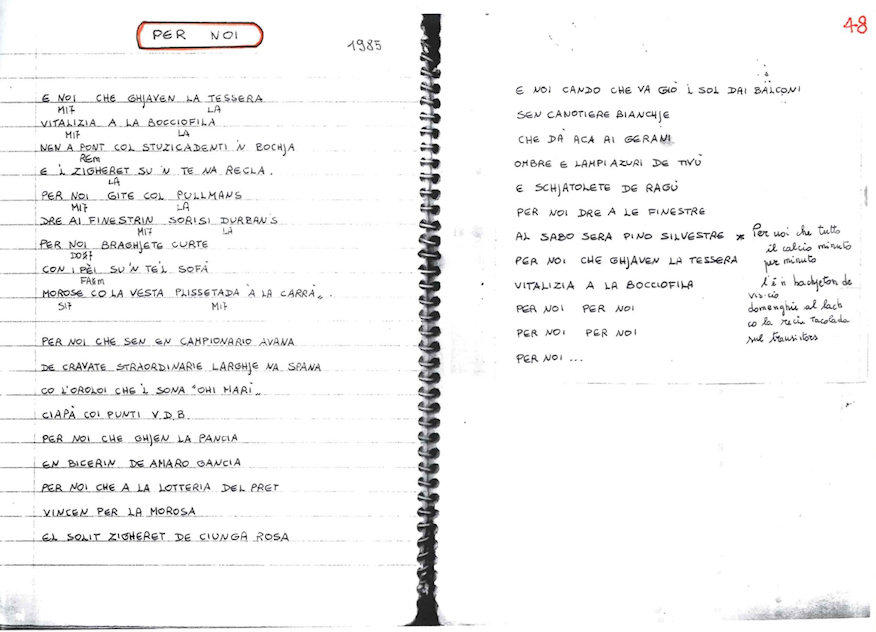 PER NOI
1985
E NOI CHE GHJAVEN LA TESSERA
MI7 LA
VITALIZIA A LA BOCCIOFILA
MI7 LA
NEN A PONT COL STUZICADENTI 'N BOCHJA
REm
E 'L ZIGHERET SU 'N TE NA RECLA.
LA
PER NOI GITE COL PULLMANS
MI7 LA
DRE AI FINESTRIN SORISI DURBAN'S
MI7 LA
PER NOI BRAGHJETE CURTE
DO#7
CON I PÈI SU 'N TE'L SOFÀ
FA#m
MOROSE CO LA VESTA PLISSETADA "A LA CARRÀ".
SI7 MI7
PER NOI CHE SEN EN CAMPIONARIO AVANA
DE CRAVATE STRAORDINARIE LARGHJE NA SPANA
CO L'OROLOI CHE 'L SONA "OHI MARÌ"
CIAPÀ COI PUNTI V.D.B.
PER NOI CHE GHJEN LA PANCIA
EN BICERIN DE AMARO GANCIA
PER NOI CHE A LA LOTTERIA DEL PRET
VINCEN PER LA MOROSA
EL SOLIT ZIGHERET DE CIUNGA ROSA
48
E NOI CANDO CHE VA GIÒ 'L SOL DAI BALCONI
SEN CANOTIERE BIANCHJE
CHE DÀ ACA AI GERANI
OMBRE E LAMPI AZURI DE TIVÙ
E SCHJATOLETE DE RAGÙ
PER NOI DRE A LE FINESTRE
AL SABO SERA PINO SILVESTRE *
PER NOI CHE GHJAVEN LA TESSERA
VITALIZIA A LA BOCCIOFILA
PER NOI PER NOI
PER NOI PER NOI
PER NOI ...
Per noi che tutto
il calcio minuto
per minuto
l'è 'n bachjeton de
vis-cio
domenghie al lach
co la recia tacolada
sul transistors